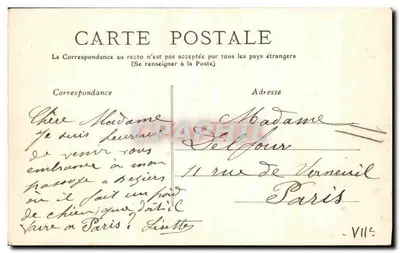 CARTE POSTALE
La Correspondance au recto n'est pas acceptée par tous les pays étrangers
(Se renseigner à la Poste)
Correspondance
Adresse
Chère Madame
Je suis heureuse
de venir vous
embrasser à mon
passage à Beziers
où il fait un froid
de chien, que doit-il
faire à Paris? Lisette
Madame
Delfour
11 rue de Verneuil
Paris
VIIe